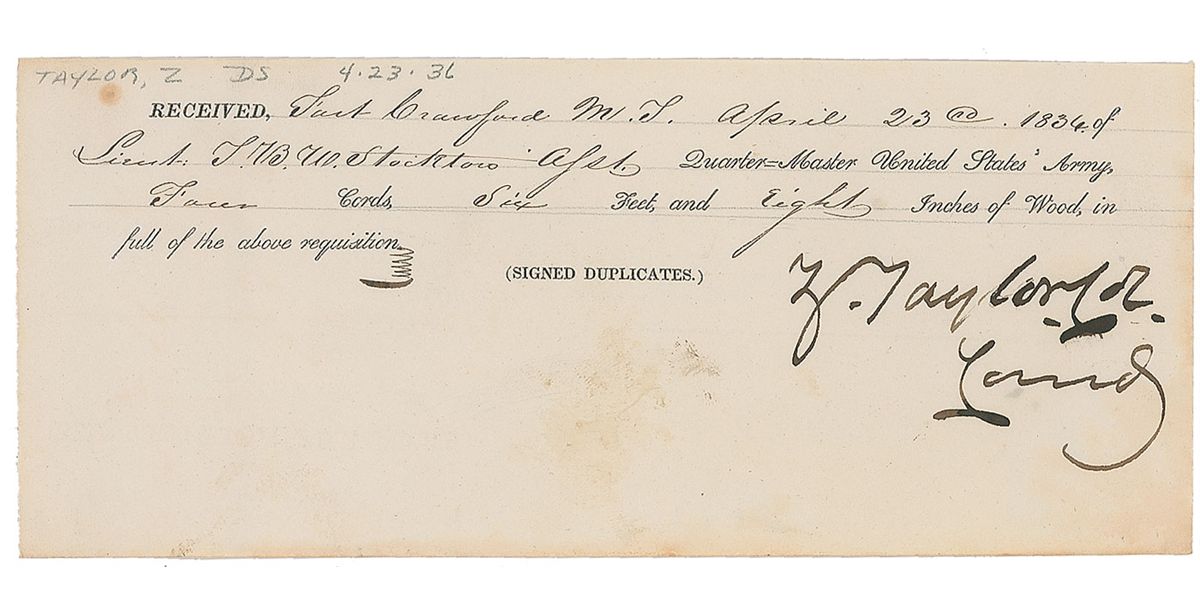 TAYLOR, Z DS 4.23.36
RECEIVED, Fort Crawford M.T. April 23d. 1836 of
Lieut: T.B.W. Stockton Asst. Quarter=Master United States' Army,
Four Cords, Six Feet, and Eight Inches of Wood, in
full of the above requisition.
(SIGNED DUPLICATES.)
Z. Taylor Col.
Comd